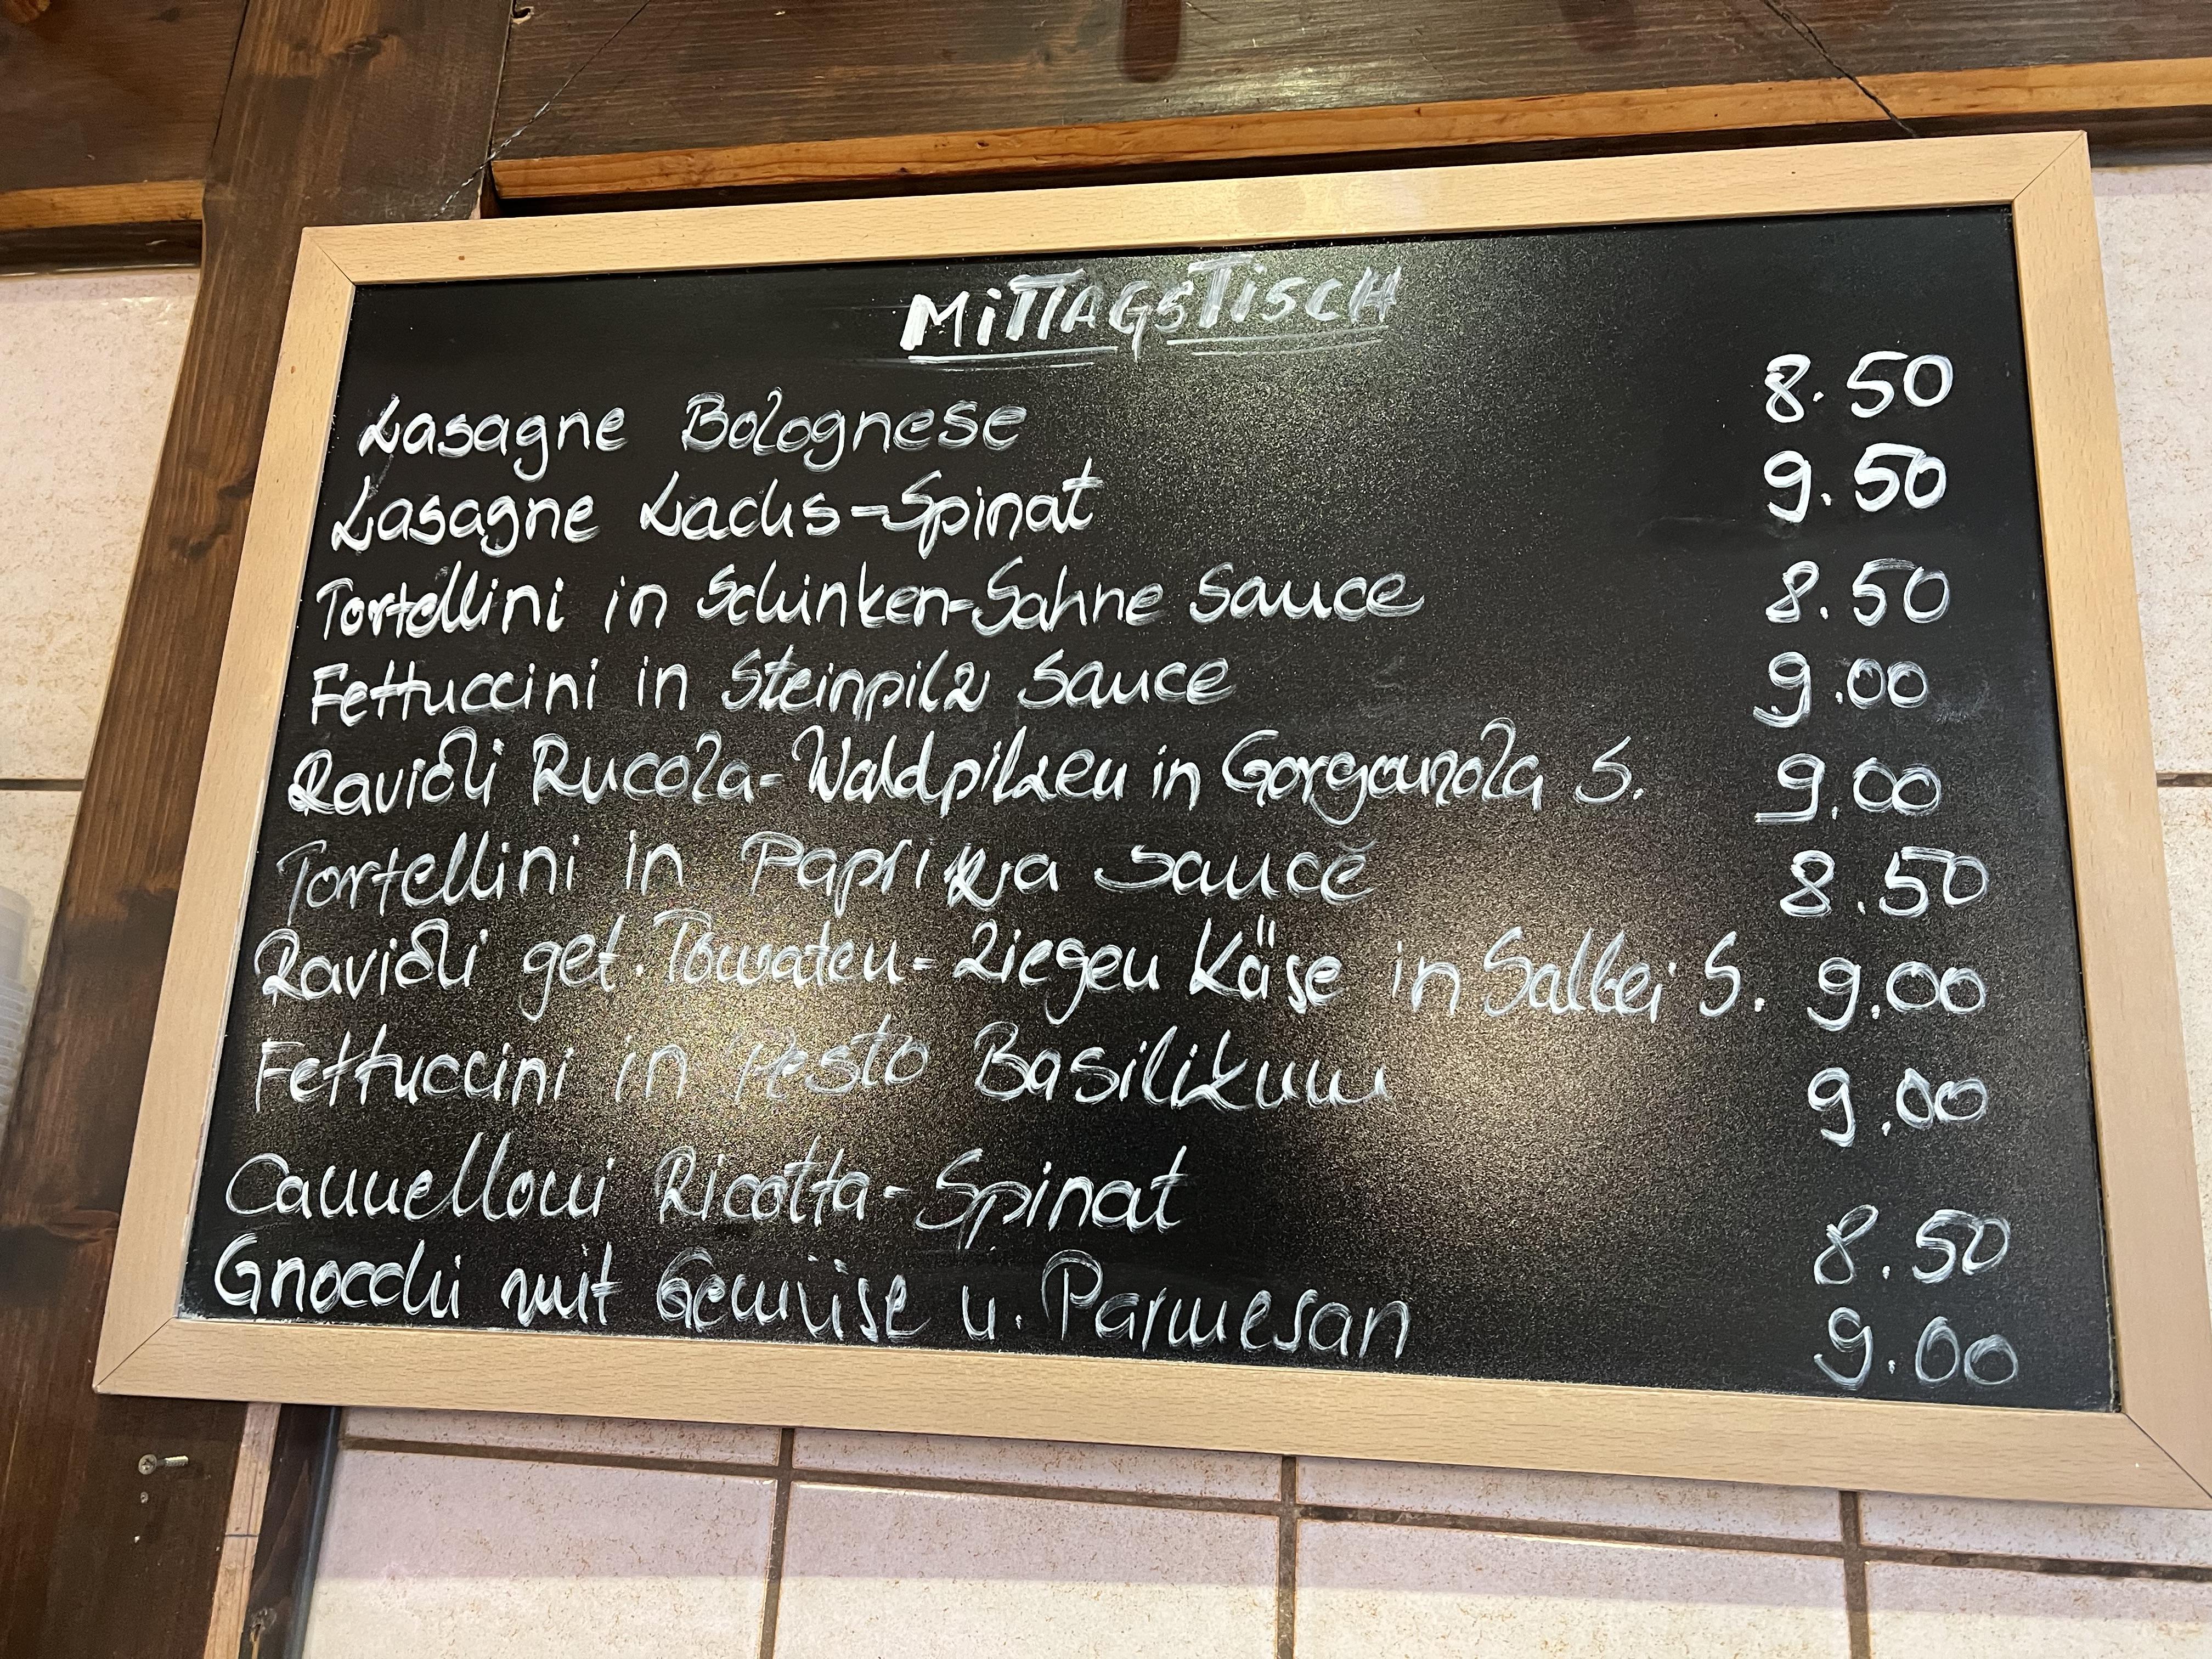 MiTTAGSTiSCH
Lasagne Bolognese 8.50
Lasagne Lachs-Spinat 9.50
Tortellini in Schinken-Sahne Sauce 8.50
Fettuccini in Steinpilz Sauce 9.00
Ravioli Rucola-Waldpilzen in Gorgonzola S. 9.00
Tortellini in Paprika Sauce 8.50
Ravioli get. Tomaten-Ziegen Käse in Salbei S. 9.00
Fettuccini in Pesto Basilikum 9.00
Cannelloni Ricotta-Spinat 8.50
Gnocchi mit Gemüse u. Parmesan 9.00